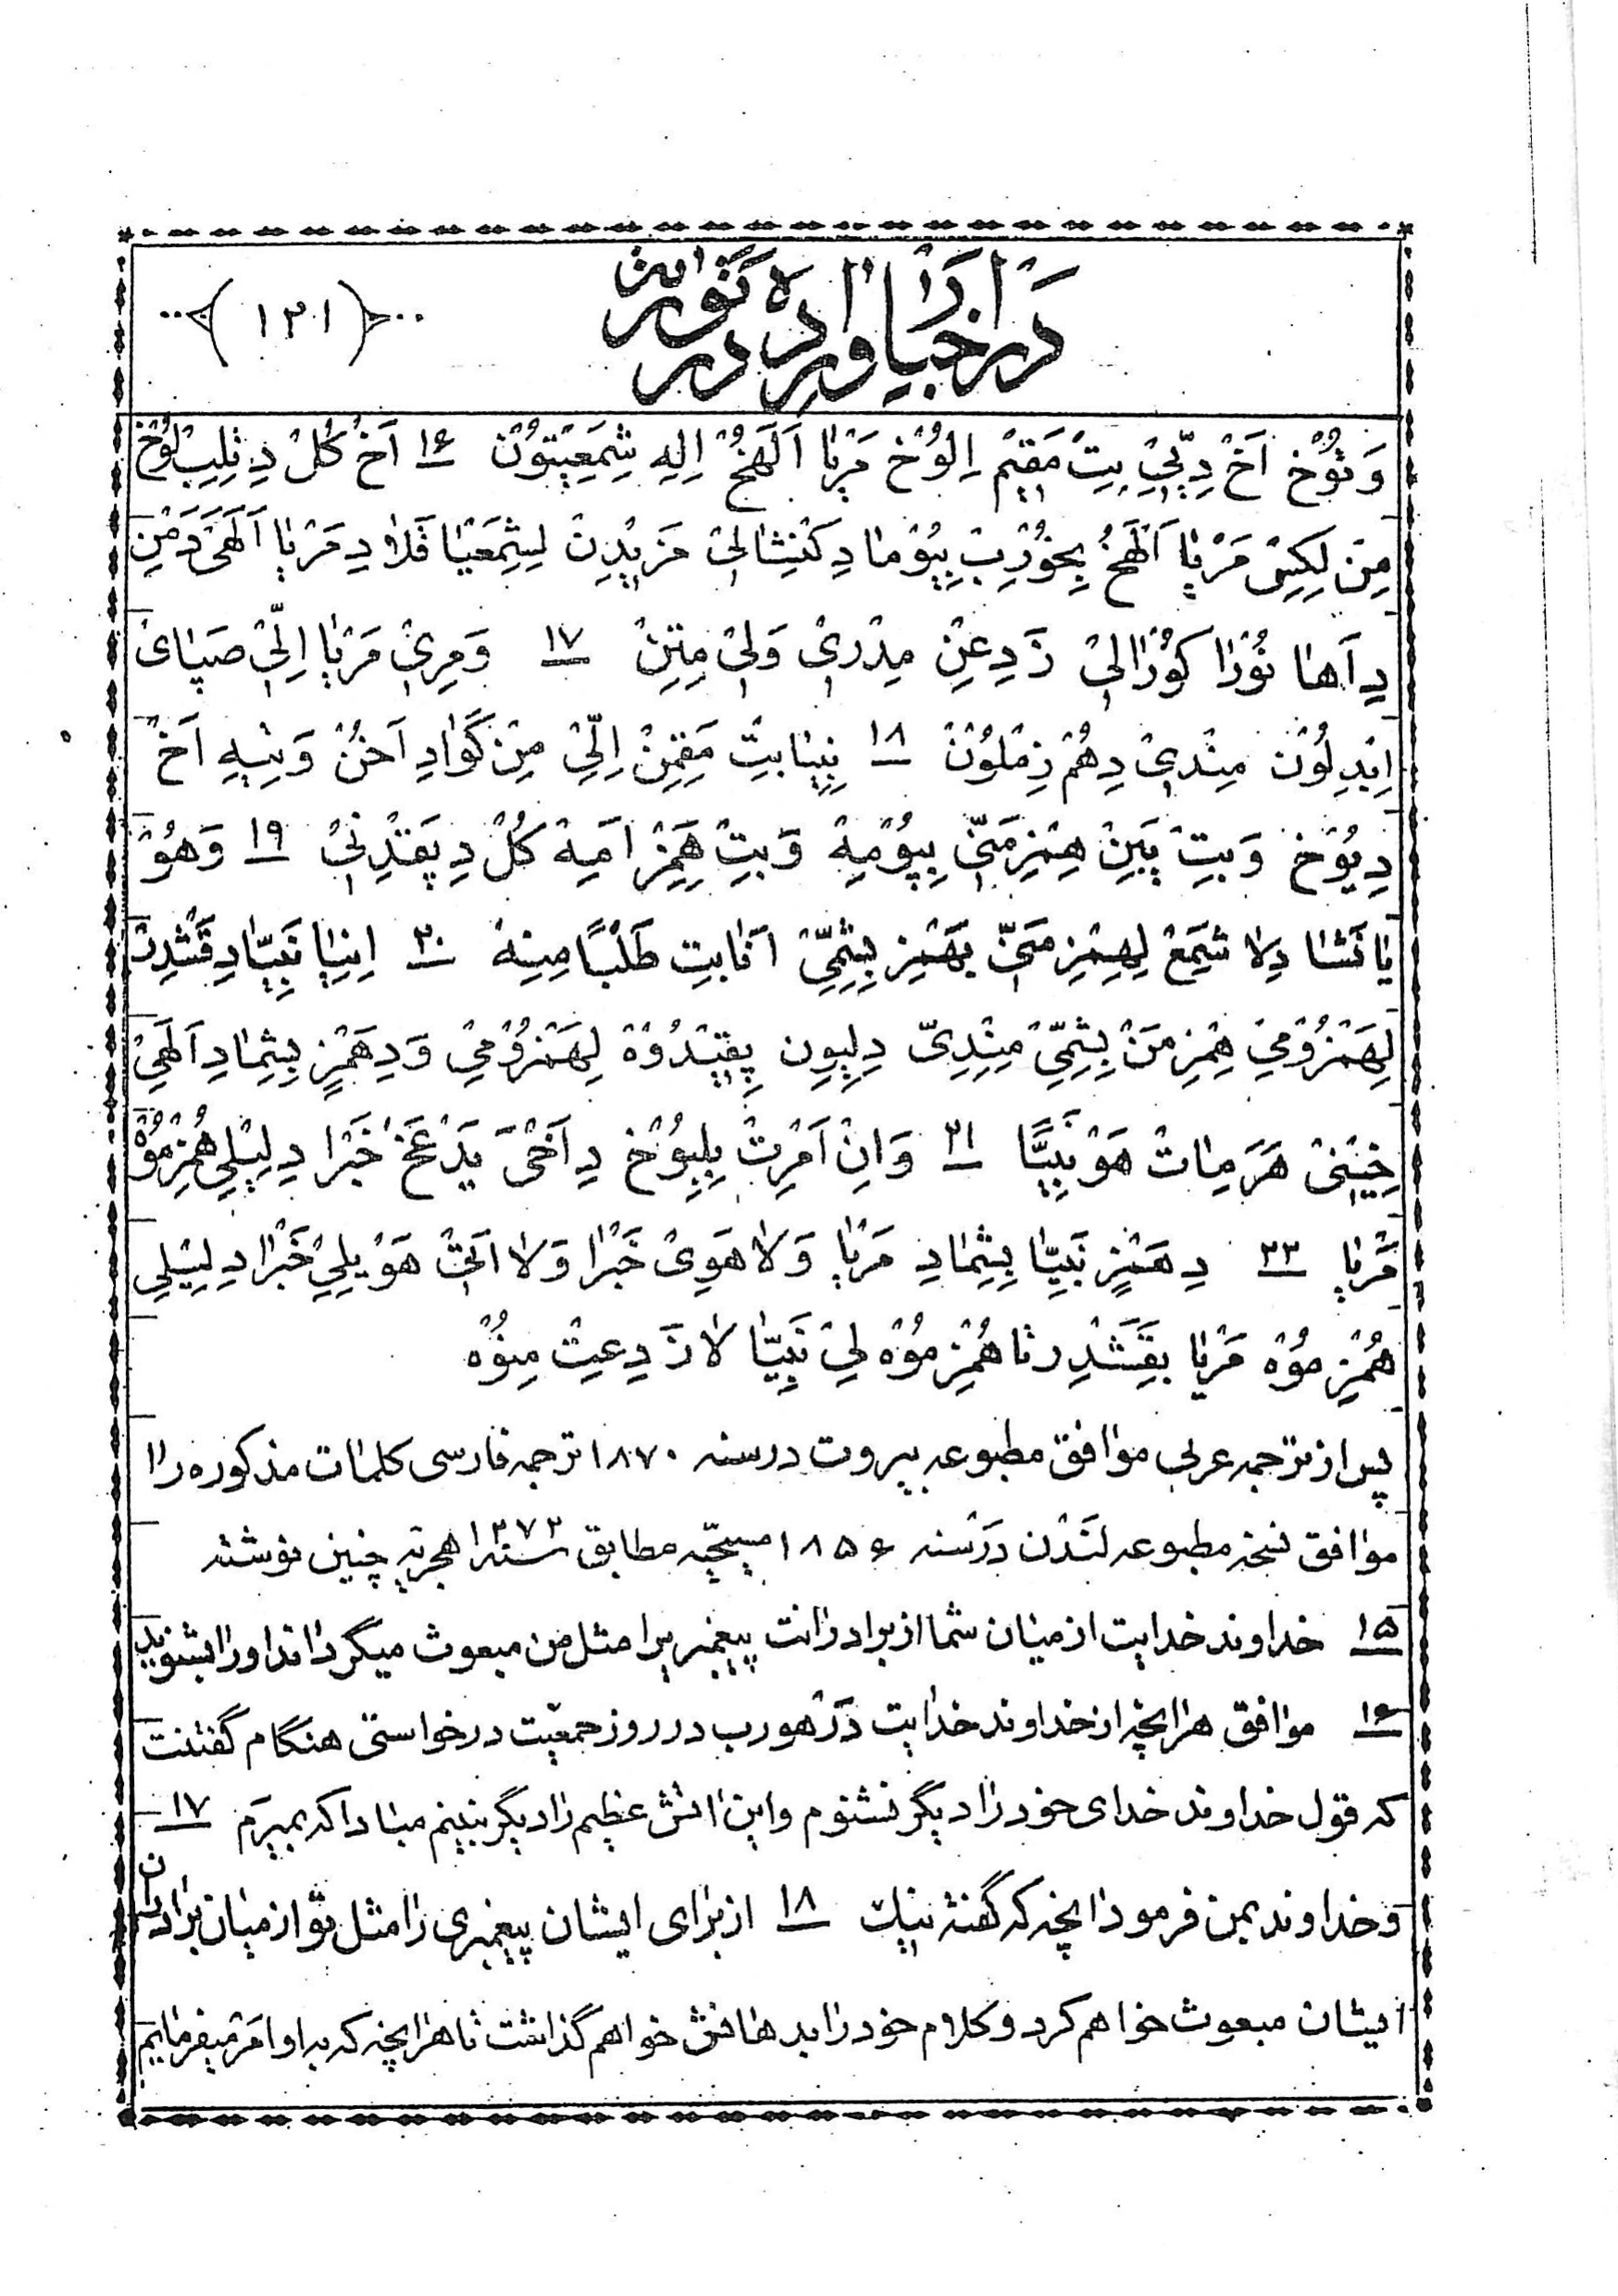 در اخبار وارده در تورات
(١٣١)
وَنُوُخ اَخْ دِيّيْ بِتْ مَقِيمْ اِلُوُخ مَرْيٰا اَلَهَخُ اِلِهِ شِمَعِيتُوُنْ ١٦ اَخْ كُلْ دِ طْلِيبْ لُوُخْ
مِنْ لِكِسْ مَرْيٰا اَلَهَخُ بِخُوُرِبْ بِيُوُمٰا دِ كْنِشٰا لىْ مَزْيِدِنْ لِشِمَعْيٰا قَلٰا دِ مَرْيٰا اَلَهىْ دَمِنْ
دِ اَهٰا نُوُرٰا كُوُرٰا لىْ زَدِعِنْ مِدْرىْ وَلىْ مِيتِنْ ١٧ وَمِرىْ مَرْيٰا اِلّىْ صَپٰاىْ
اِبْدِلُوُنْ مِنْدىْ دِهُمْزِمْلُوُنْ ١٨ نِبِيٰا بِتْ مَقِمِنْ اِلّىْ مِنْ گَوٰا دِ اَخُنْ وَنِيهِ اَخْ
دِيُوُخ وَبِتْ يَبِنْ هِمْزِمَنّىْ بِپُوُمِهْ وَبِتْ هَمْزِمْ اَمِهْ كُلْ دِ پَقْدِنىْ ١٩ وَهُوْ
يٰا نَشٰا دِلٰا شَمِعْ لِهِمْزِمَنّىْ بَهْمْزِمْ بِشِمّىْ اَنٰا بِتْ طَلْبًا مِنِهْ ٢٠ اِنٖيٰا نَبِيّٰا دِ قَشْدِرْ
لِهَمْزُوُمىْ هِمْزِمَنْ بِشِمّىْ مِنْدِىّ دِلِيوِن پِقْيْدُوُهْ لِهَمْزُوُمىْ وَدِ هَمْزِمْ بِشِمٰا دِ اَلَهىْ
خِيٖنىْ هَرْ مِاتْ هَوْ نَبِيّٰا ٢١ وَاِنْ اَمْرِتْ بِلِبُوُخْ دِ اَخْىْ يَدْعَخْ خَبْرٰا دِ لِيْلِىْ هُمْزِمُوُهْ
مَرْيٰا ٢٢ دِ هَمْزِمْ نَبِيّٰا بِشِمٰا دِ مَرْيٰا وَلٰا هَوِىْ خَبْرٰا وَلٰا اَتىْ هَوْيِلِىْ خَبْرٰا دِ لِيْلِى
هُمْزِمُوُهْ مَرْيٰا بِقَشَدِرْتٰا هُمْزِمُوُهْ لىْ نَبِيّٰا لٰا زَدِعِتْ مِنُوُهْ
پس از ترجمه عربى موافق مطبوعه بيروت در سنه ١٨٧٠ ترجمه فارسى كلمات مذكوره را
موافق نسخه مطبوعه لندن در سنه ١٨٥٦ مسيحيّه مطابق سنه ١٢٧٢ هجريه چنين نوشته
١٥ خداوند خدايت از ميان شما از برادرانت پيغمبريرا مثل من مبعوث ميگرداند او را بشنويد
١٦ موافق هرانچه از خداوند خدايت در هورب در روز جمعيّت درخواستى هنگام گفتنت
كه قول خداوند خداى خود را ديگر نشنوم و اين اتش عظيم را ديگر نبينم مبادا كه بميرم ١٧
و خداوند بمن فرمود انچه كه گفتند نيكست ١٨ از براى ايشان پيغمبرى را مثل تو از ميان برادران
ايشان مبعوث خواهم كرد و كلام خود را بدهانش خواهم گذاشت تا هرانچه كه به او امر ميفرمايم